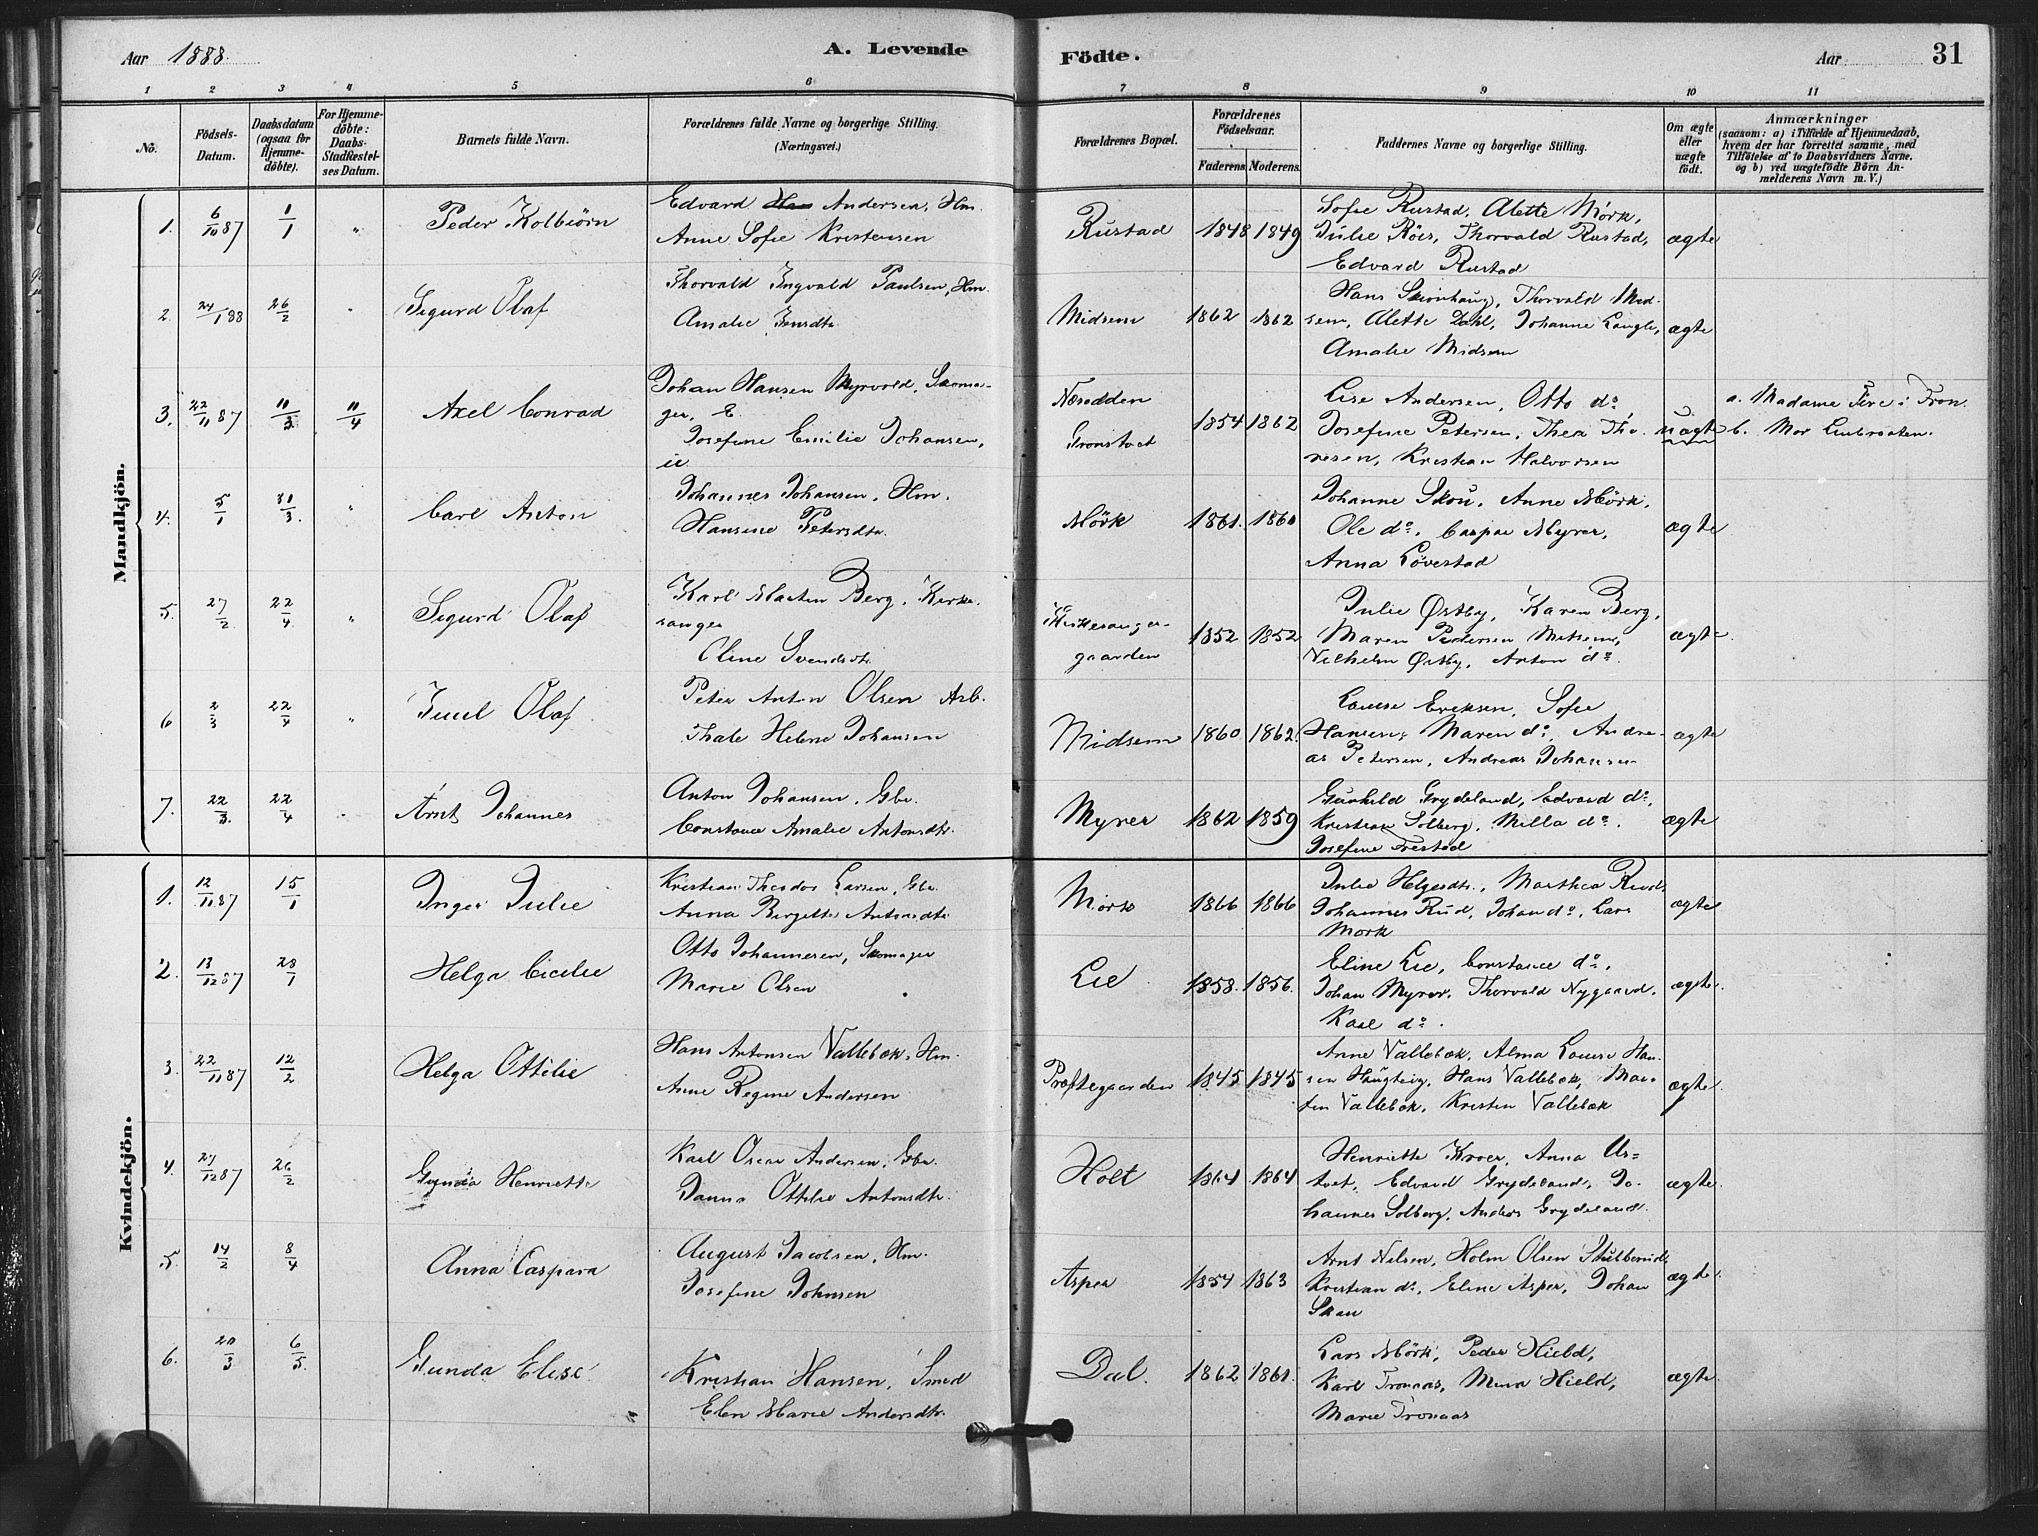 Aar 1888. A. Levende Födte. Aar 31
1 2 3 4 5 6 7 8 9 10 11
No. Födsels-Datum. Daabsdatum (ogsaa for Hjemme-döbte). For Hjemme-döbte: Daabs-Stadfæstel-ses Datum. Barnets fulde Navn. Forældrenes fulde Navne og borgerlige Stilling. (Næringsvei.) Forældrenes Bopæl. Forældrenes Födselsaar. Faderens Moderens Faddernes Navne og borgerlige Stilling. Om ægte eller uægte födt. Anmærkninger (saasom: a) i Tilfælde af Hjemmedaab, hvem der har forrettet samme, med Tilföielse af to Daabsvidners Navne, og b) ved uægtefödte Börn An-melderens Navn m. V.)
Mandkjön.
1. 6/10 87 1/1 " Peder Kolbiörn Edvard Andersen, Hm. Rustad 1848 1849 Sofie Rustad, Alette Mörk, ægte
Anne Sofie Kristensen Julie Röis, Thorvald Rustad,
Edvard Rustad
2. 24/1 88 26/2 " Sigurd Olaf Thorvald Ingvald Paulsen, Hm. Midsem 1862 1862 Hans Skionhaug, Thorvald Mid- ægte
Amalie Jensdtr. sem, Alette Dahl, Johanne Langli,
Amalie Midsem
3. 22/11 87 11/3 11/4 Axel Conrad Johan Hansen Myrvold, Skoma- Næsodden 1854 1862 Lise Andersen, Otto do uægte a. Madame Fire i Tron.
ger, E. Gronstvet Josefine Petersen, Thea Tho- b. Mor Linbraaten.
Josefine Emilie Johansen, resen, Kristian Halvorsen
ie
4. 5/1 31/3. " Carl Anton Johannes Johansen, Hm. Mörk 1861. 1860 Johanne Skou, Anne Mörk, ægte
Hansine Petersdtr. Ole do, Caspar Myrer,
Anna Lövestad
5. 27/2. 22/4. " Sigurd Olaf Karl Martin Berg, Kirke- Kirkesanger- 1852 1852 Julie Østby, Karen Berg, ægte.
sanger gaarden Maren Pedersen Midsem,
Oline Svendsdtr. Vilhelm Østby, Anton do.
6 2/3 22/4 " Juul Olaf Peter Anton Olsen Arb. Midsem 1860 1862. Louise Eriksen, Sofie ægte
Thale Helene Johansen Hansen, Maren do, Andre-
as Petersen, Andreas Johansen
7. 22/3. 22/4 Arnt Johannes Anton Johansen, Gbr. Myrer 1862 1859 Gunhild Grydeland, Edvard do, ægte
Constance Amalie Antonsdtr. Kristian Solberg, Milla do.
Josefine Frestad
Kvindekjön.
1. 12/11 87 15/1 Inger Julie Kristian Theodor Larsen, Gbr. Mörk 1866 1866 Julie Helgesdtr., Marthea Ruud, ægte
Anna Bergitte Antonsdtr. Johannes Rud, Johan do, Lars
Mork
2. 13/12 87 28/1 Helga Cicilie Otto Johannesen, Skomager Lie 1858. 1856. Eline Lie, Constance do, ægte.
Marie Olsen Johan Myrer, Thorvald Nygaard,
Karl do.
3. 22/11 87 12/2 Helga Ottilie Hans Antonsen Vallebæk, Hm. Præstegaarden 1845 1845 Anne Vallebæk, Alma Louise Han- ægte.
Anne Regine Andersen sen Haugteig, Hans Vallebæk, Mar-
tin Vallebæk, Kristen Vallebæk
4. 27/12 87 26/2 Gunda Henriette Karl Oscar Andersen, Gbr. Holt 1864 1864 Henriette Kroer, Anna Us- ægte.
Danna Ottilie Antonsdtr. tvet, Edvard Grydeland, Jo-
hannes Solberg, Anders Grydeland.
5. 14/2 8/4 Anna Caspara August Jacobsen, Hm. Asper 1854 1863 Arnt Nilsen, Holm Olsen Stubberud, ægte.
Josefine Johnsen Kristian do, Eline Asper, Johan
Skau
6. 20/3 6/5. Gunda Elise Kristian Hansen, Smed Dal. 1862 1861. Lars Mörk, Peder Hield, ægte
Elen Marie Andersdtr. Karl Tronaas, Mina Hield,
Marie Tronaas